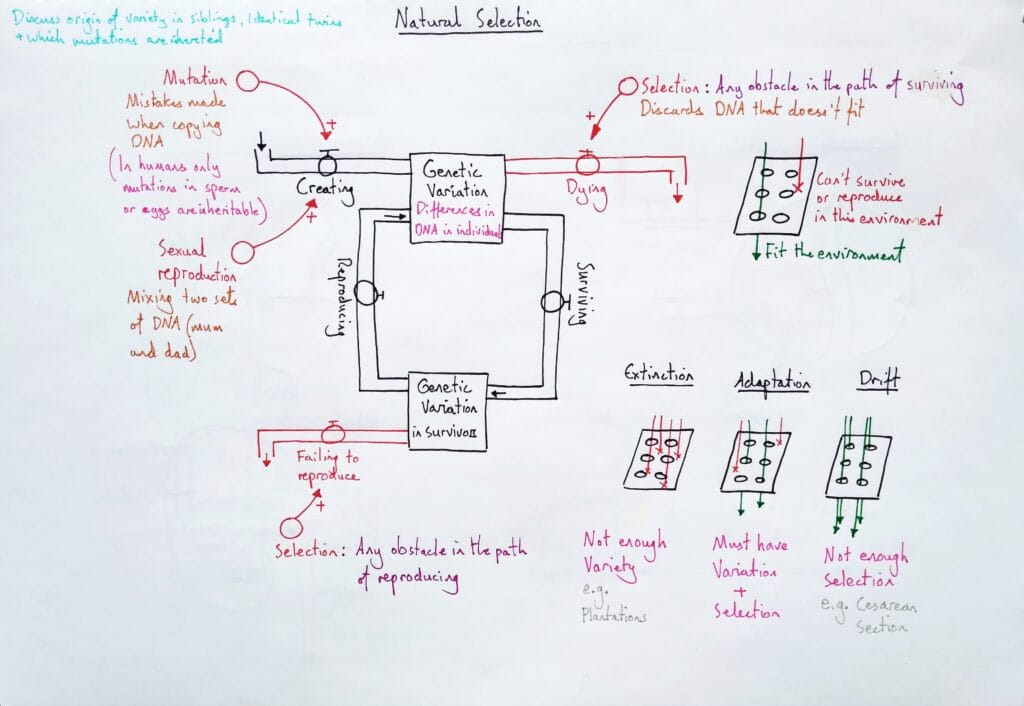 Discuss origin of variety in siblings, Identical twins
+ which mutations are inherited
Natural Selection
Mutation
Mistakes made
when copying
DNA
(In humans only
mutations in sperm
or eggs are inheritable)
+
Creating
+
Sexual
reproduction
Mixing two sets
of DNA (mum
and dad)
Genetic
Variation
Differences in
DNA in individual
Selection: Any obstacle in the path of surviving
Discards DNA that doesn't fit
+
Dying
Can't survive
or reproduce
in this environment
Fit the environment
Reproducing
Surviving
Genetic
Variation
in Survivo
Failing to
reproduce
+
Selection: Any obstacle in the path
of reproducing
Extinction
Not enough
Variety
e.g.
Plantations
Adaptation
Must have
Variation
+
Selection
Drift
Not enough
Selection
e.g. Cesarean
Section